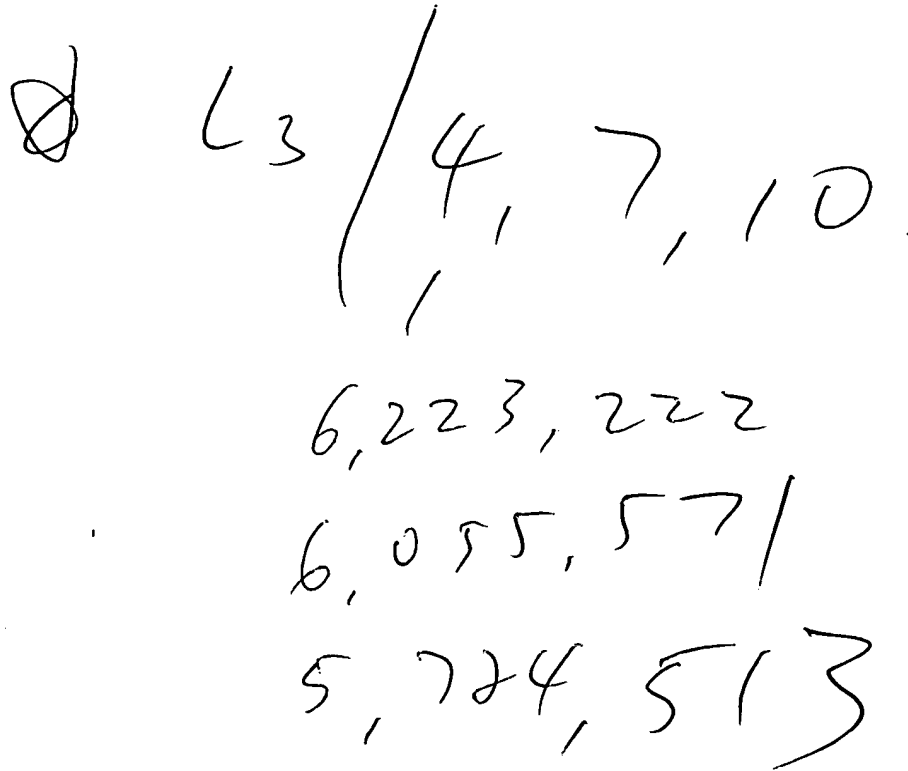 L3/4, 7, 10.
6,223,222
6,055,571
5,784,513